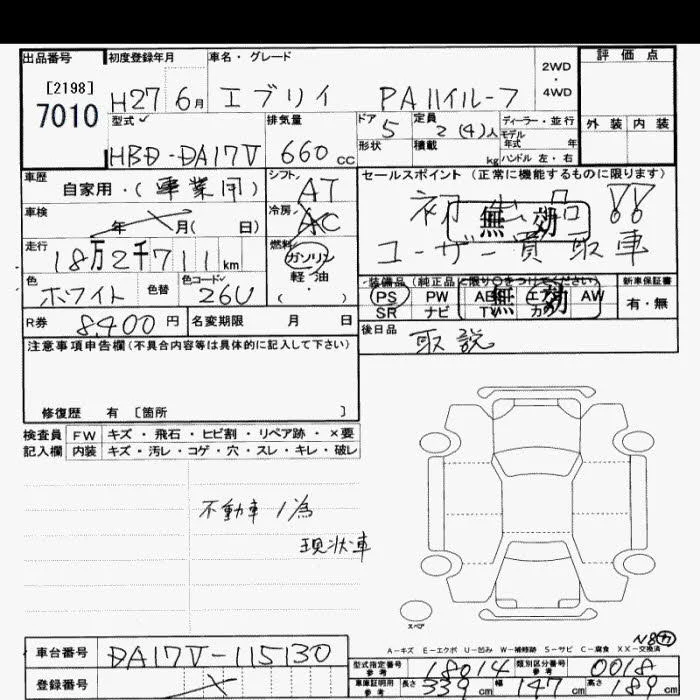 出品番号 初度登録年月 車名・グレード 2WD・4WD 評価点
[2198]
7010 H27 6月 エブリイ PAハイルーフ
型式 排気量 ドア 定員 ディーラー・並行 外装 内装
HBD-DA17V 660cc 5 2(4)人 モデル年式 年
形状 積載 kg ハンドル 左・右
車歴 シフト セールスポイント (正常に機能するものに限ります)
自家用・(事業用) AT 初出品!!
車検 冷房 無効
年 月( 日) AC ユーザー買取車
走行 燃料
18万2千711km ガソリン
軽・油
( )
色 色替 色コード 装備品 (純正品に限り○をつけてください) 新車保証書
ホワイト 26U PS PW AB エア AW 有・無
無効
SR ナビ TV カワ
R券 8,400円 名変期限 月 日 後日品 取説
注意事項申告欄(不具合内容等は具体的に記入して下さい)
修復歴 有 [箇所 ]
検査員 FW キズ・飛石・ヒビ割・リペア跡・×要
記入欄 内装 キズ・汚レ・コゲ・穴・スレ・キレ・破レ
不動車ノ為
現状車
スペア
A-キズ E-エクボ U-凹み W-補修跡 S-サビ C-腐食 XX-交換済
車台番号 DA17V-115130
型式指定番号 参考 18014 類別区分番号 参考 0018
登録番号
車庫証明用 参考 長さ 339cm 幅 147cm 高さ 189cm